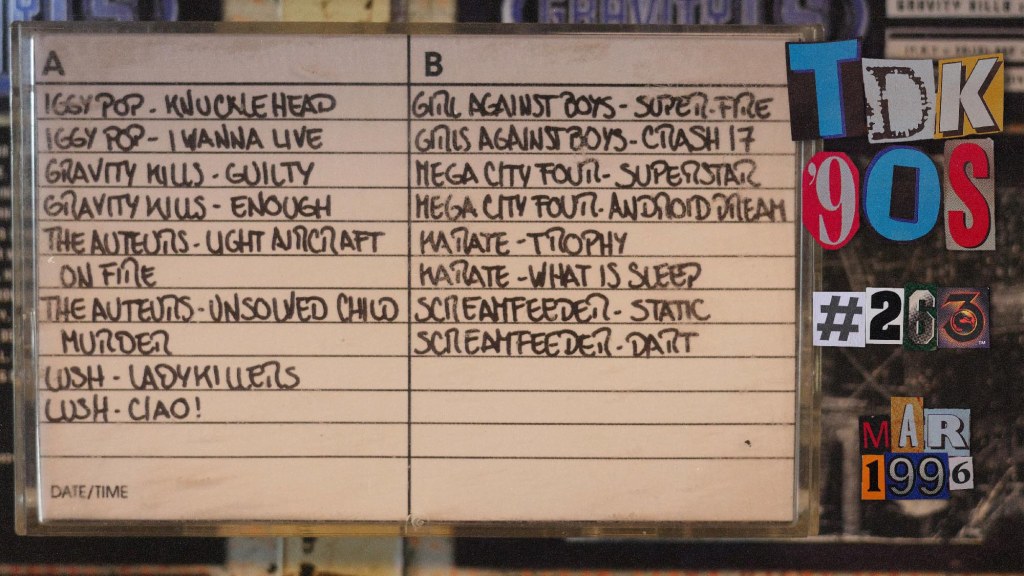 GRAVITY KILLS
A
IGGY POP - KNUCKLEHEAD
IGGY POP - I WANNA LIVE
GRAVITY KILLS - GUILTY
GRAVITY KILLS - ENOUGH
THE AUTEURS - LIGHT AIRCRAFT
ON FIRE
THE AUTEURS - UNSOLVED CHILD
MURDER
LUSH - LADYKILLERS
LUSH - CIAO!
DATE/TIME
B
GIRL AGAINST BOYS - SUPER-FIRE
GIRLS AGAINST BOYS - CRASH 17
MEGA CITY FOUR - SUPERSTAR
MEGA CITY FOUR - ANDROID DREAM
KARATE - TROPHY
KARATE - WHAT IS SLEEP
SCREAMFEEDER - STATIC
SCREAMFEEDER - DART
TDK
'90S
#263
MAR
1996